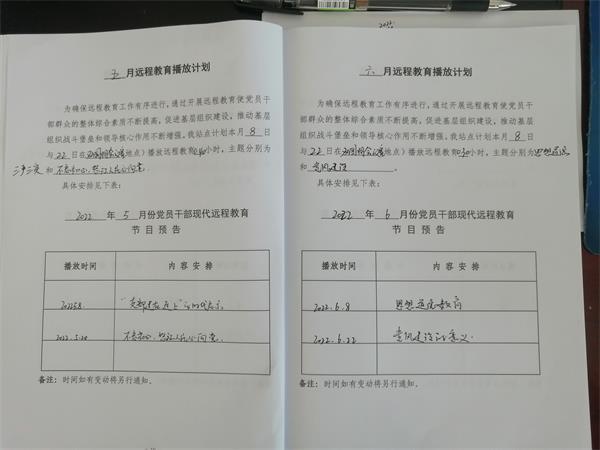 五 月远程教育播放计划
为确保远程教育工作有序进行,通过开展远程教育使党员干
部群众的整体综合素质不断提高,促进基层组织建设,推动基层
组织战斗堡垒和领导核心作用不断增强。我站点计划本月 8 日
与 22 日在 (地点)播放远程教育 小时,主题分别为
和 不忘初心
具体安排见下表:
2022 年 5 月份党员干部现代远程教育
节 目 预 告
播放时间 内 容 安 排
2022.5.8.
2022.5.20 不忘初心
备注:时间如有变动将另行通知。
六 月远程教育播放计划
为确保远程教育工作有序进行,通过开展远程教育使党员干
部群众的整体综合素质不断提高,促进基层组织建设,推动基层
组织战斗堡垒和领导核心作用不断增强。我站点计划本月 8 日
与 22 日在 地点)播放远程教育 小时,主题分别为 思想道德
和 党风建设 。
具体安排见下表:
2022 年 6 月份党员干部现代远程教育
节 目 预 告
播放时间 内 容 安 排
2022.6.8 思想道德教育
2022.6.22 党风建设的意义
备注:时间如有变动将另行通知。